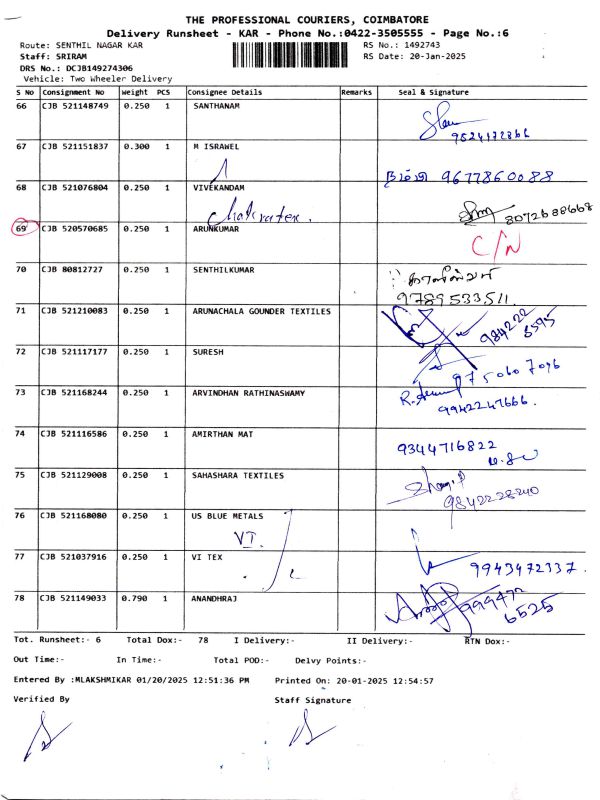 THE PROFESSIONAL COURIERS, COIMBATORE
Delivery Runsheet - KAR - Phone No.:0422-3505555 - Page No.:6
Route: SENTHIL NAGAR KAR RS No.: 1492743
Staff: SRIRAM RS Date: 20-Jan-2025
DRS No.: DCJB149274306
Vehicle: Two Wheeler Delivery
S No Consignment No Weight PCS Consignee Details Remarks Seal & Signature
66 CJB 521148749 0.250 1 SANTHANAM
9524172866
67 CJB 521151837 0.300 1 M ISRAWEL
9677860088
68 CJB 521076804 0.250 1 VIVEKANDAM
8072688668
69 CJB 520570685 0.250 1 ARUNKUMAR C/N
70 CJB 80812727 0.250 1 SENTHILKUMAR
9789533511.
71 CJB 521210083 0.250 1 ARUNACHALA GOUNDER TEXTILES 984222
8595
72 CJB 521117177 0.250 1 SURESH
9750607096
73 CJB 521168244 0.250 1 ARVINDHAN RATHINASWAMY
9942247666.
74 CJB 521116586 0.250 1 AMIRTHAN MAT
9344716822
75 CJB 521129008 0.250 1 SAHASHARA TEXTILES
9842228240
76 CJB 521168080 0.250 1 US BLUE METALS
VT.
77 CJB 521037916 0.250 1 VI TEX
9943472337.
78 CJB 521149033 0.790 1 ANANDHRAJ 999472
6525
Tot. Runsheet:- 6 Total Dox:- 78 I Delivery:- II Delivery:- RTN Dox:-
Out Time:- In Time:- Total POD:- Delvy Points:-
Entered By :MLAKSHMIKAR 01/20/2025 12:51:36 PM Printed On: 20-01-2025 12:54:57
Verified By Staff Signature